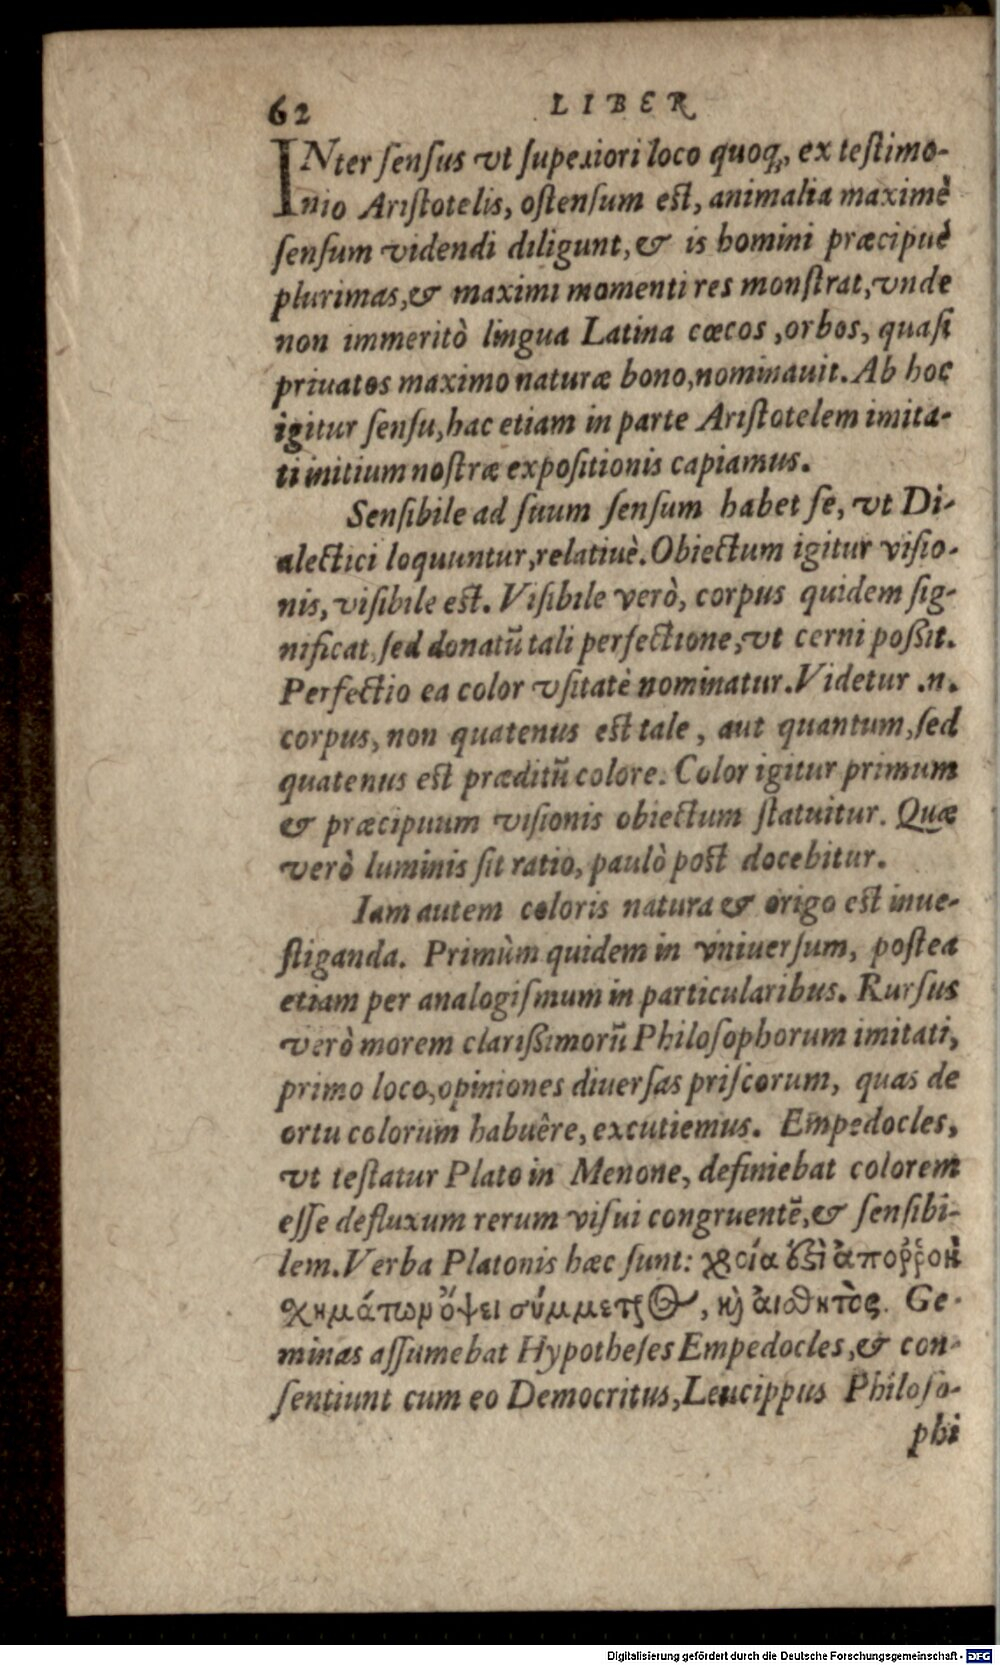 62 LIBER
INter ſenſus vt ſuperiori loco quoq;, ex teſtimo-
nio Ariſtotelis, oſtenſum eſt, animalia maximè
ſenſum videndi diligunt, & is homini præcipuè
plurimas, & maximi momenti res monſtrat, vnde
non immeritò lingua Latina cœcos, orbos, quaſi
priuatos maximo naturæ bono, nominauit. Ab hoc
igitur ſenſu, hac etiam in parte Ariſtotelem imita-
ti initium noſtræ expoſitionis capiamus.
Senſibile ad ſuum ſenſum habet ſe, vt Di-
alectici loquuntur, relatiuè. Obiectum igitur viſio-
nis, viſibile eſt. Viſibile verò, corpus quidem ſig-
nificat, ſed donatū tali perfectione, vt cerni poßit.
Perfectio ea color vſitatè nominatur. Videtur .n.
corpus, non quatenus eſt tale, aut quantum, ſed
quatenus eſt præditū colore. Color igitur primum
& præcipuum viſionis obiectum ſtatuitur. Quæ
verò luminis ſit ratio, paulò poſt docebitur.
Iam autem coloris natura & origo eſt inue-
ſtiganda. Primùm quidem in vniuerſum, poſtea
etiam per analogiſmum in particularibus. Rurſus
verò morem clarißimorū Philoſophorum imitati,
primo loco, opiniones diuerſas priſcorum, quas de
ortu colorum habuêre, excutiemus. Empedocles,
vt teſtatur Plato in Menone, definiebat colorem
eſſe defluxum rerum viſui congruentē, & ſenſibi-
lem. Verba Platonis hæc ſunt: χρόα ἐστὶ ἀποῤῥοὴ
χημάτων ὄψει σύμμετρος, κὶ αἰσθητὸς. Ge-
minas aſſumebat Hypotheſes Empedocles, & con-
ſentiunt cum eo Democritus, Leucippus Philoſo-
phi
Digitalisierung gefördert durch die Deutsche Forschungsgemeinschaft - DFG